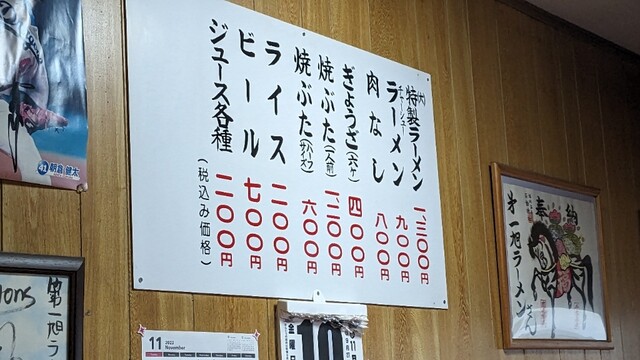 (大)
特製ラーメン 一、三〇〇円
チャーシュー
ラーメン 九〇〇円
肉なし 八〇〇円
ぎょうざ(六ヶ) 四〇〇円
焼ぶた(一人前) 一、二〇〇円
焼ぶた(ハイスウ) 六〇〇円
ライス 二〇〇円
ビール 七〇〇円
ジュース各種 二〇〇円
(税込み価格)
朝倉健太
奉納
第一旭ラーメン
第一旭ラ
11
2022
November
金曜日
10
11月